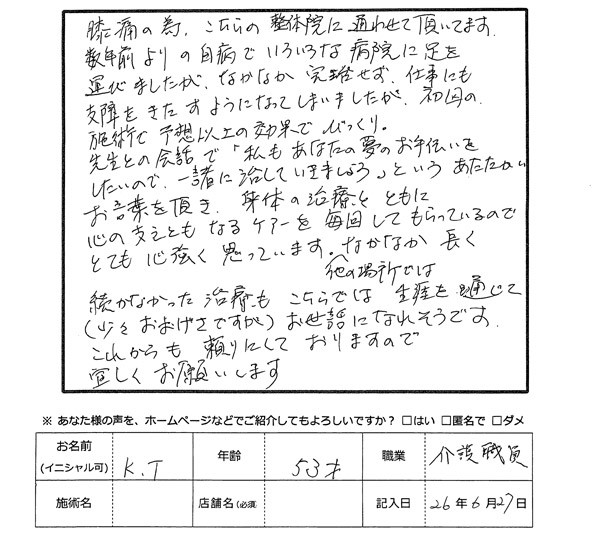 膝痛の為、こちらの整体院に通わせて頂いてます。
数年前よりの自病でいろいろな病院に足を
運びましたが、なかなか完治せず、仕事にも
支障をきたすようになってしまいましたが、初回の
施術で予想以上の効果でびっくり。
先生との会話で「私もあなたの夢のお手伝いを
したいので、一緒に治していきましょう」というあたたかい
お言葉を頂き、身体の治療とともに
心の支えともなるケアーを毎回してもらっているので
とても心強く思っています。なかなか長く
他の場所では
続かなかった治療もこちらでは生涯を通じて
(少々おおげさですが)お世話になれそうです。
これからも頼りにしておりますので
宜しくお願いします
※ あなた様の声を、ホームページなどでご紹介してもよろしいですか？ □はい □匿名で □ダメ
お名前 (イニシャル可) K.T 年齢 53才 職業 介護職員
施術名 店舗名(必須) 記入日 26年6月27日